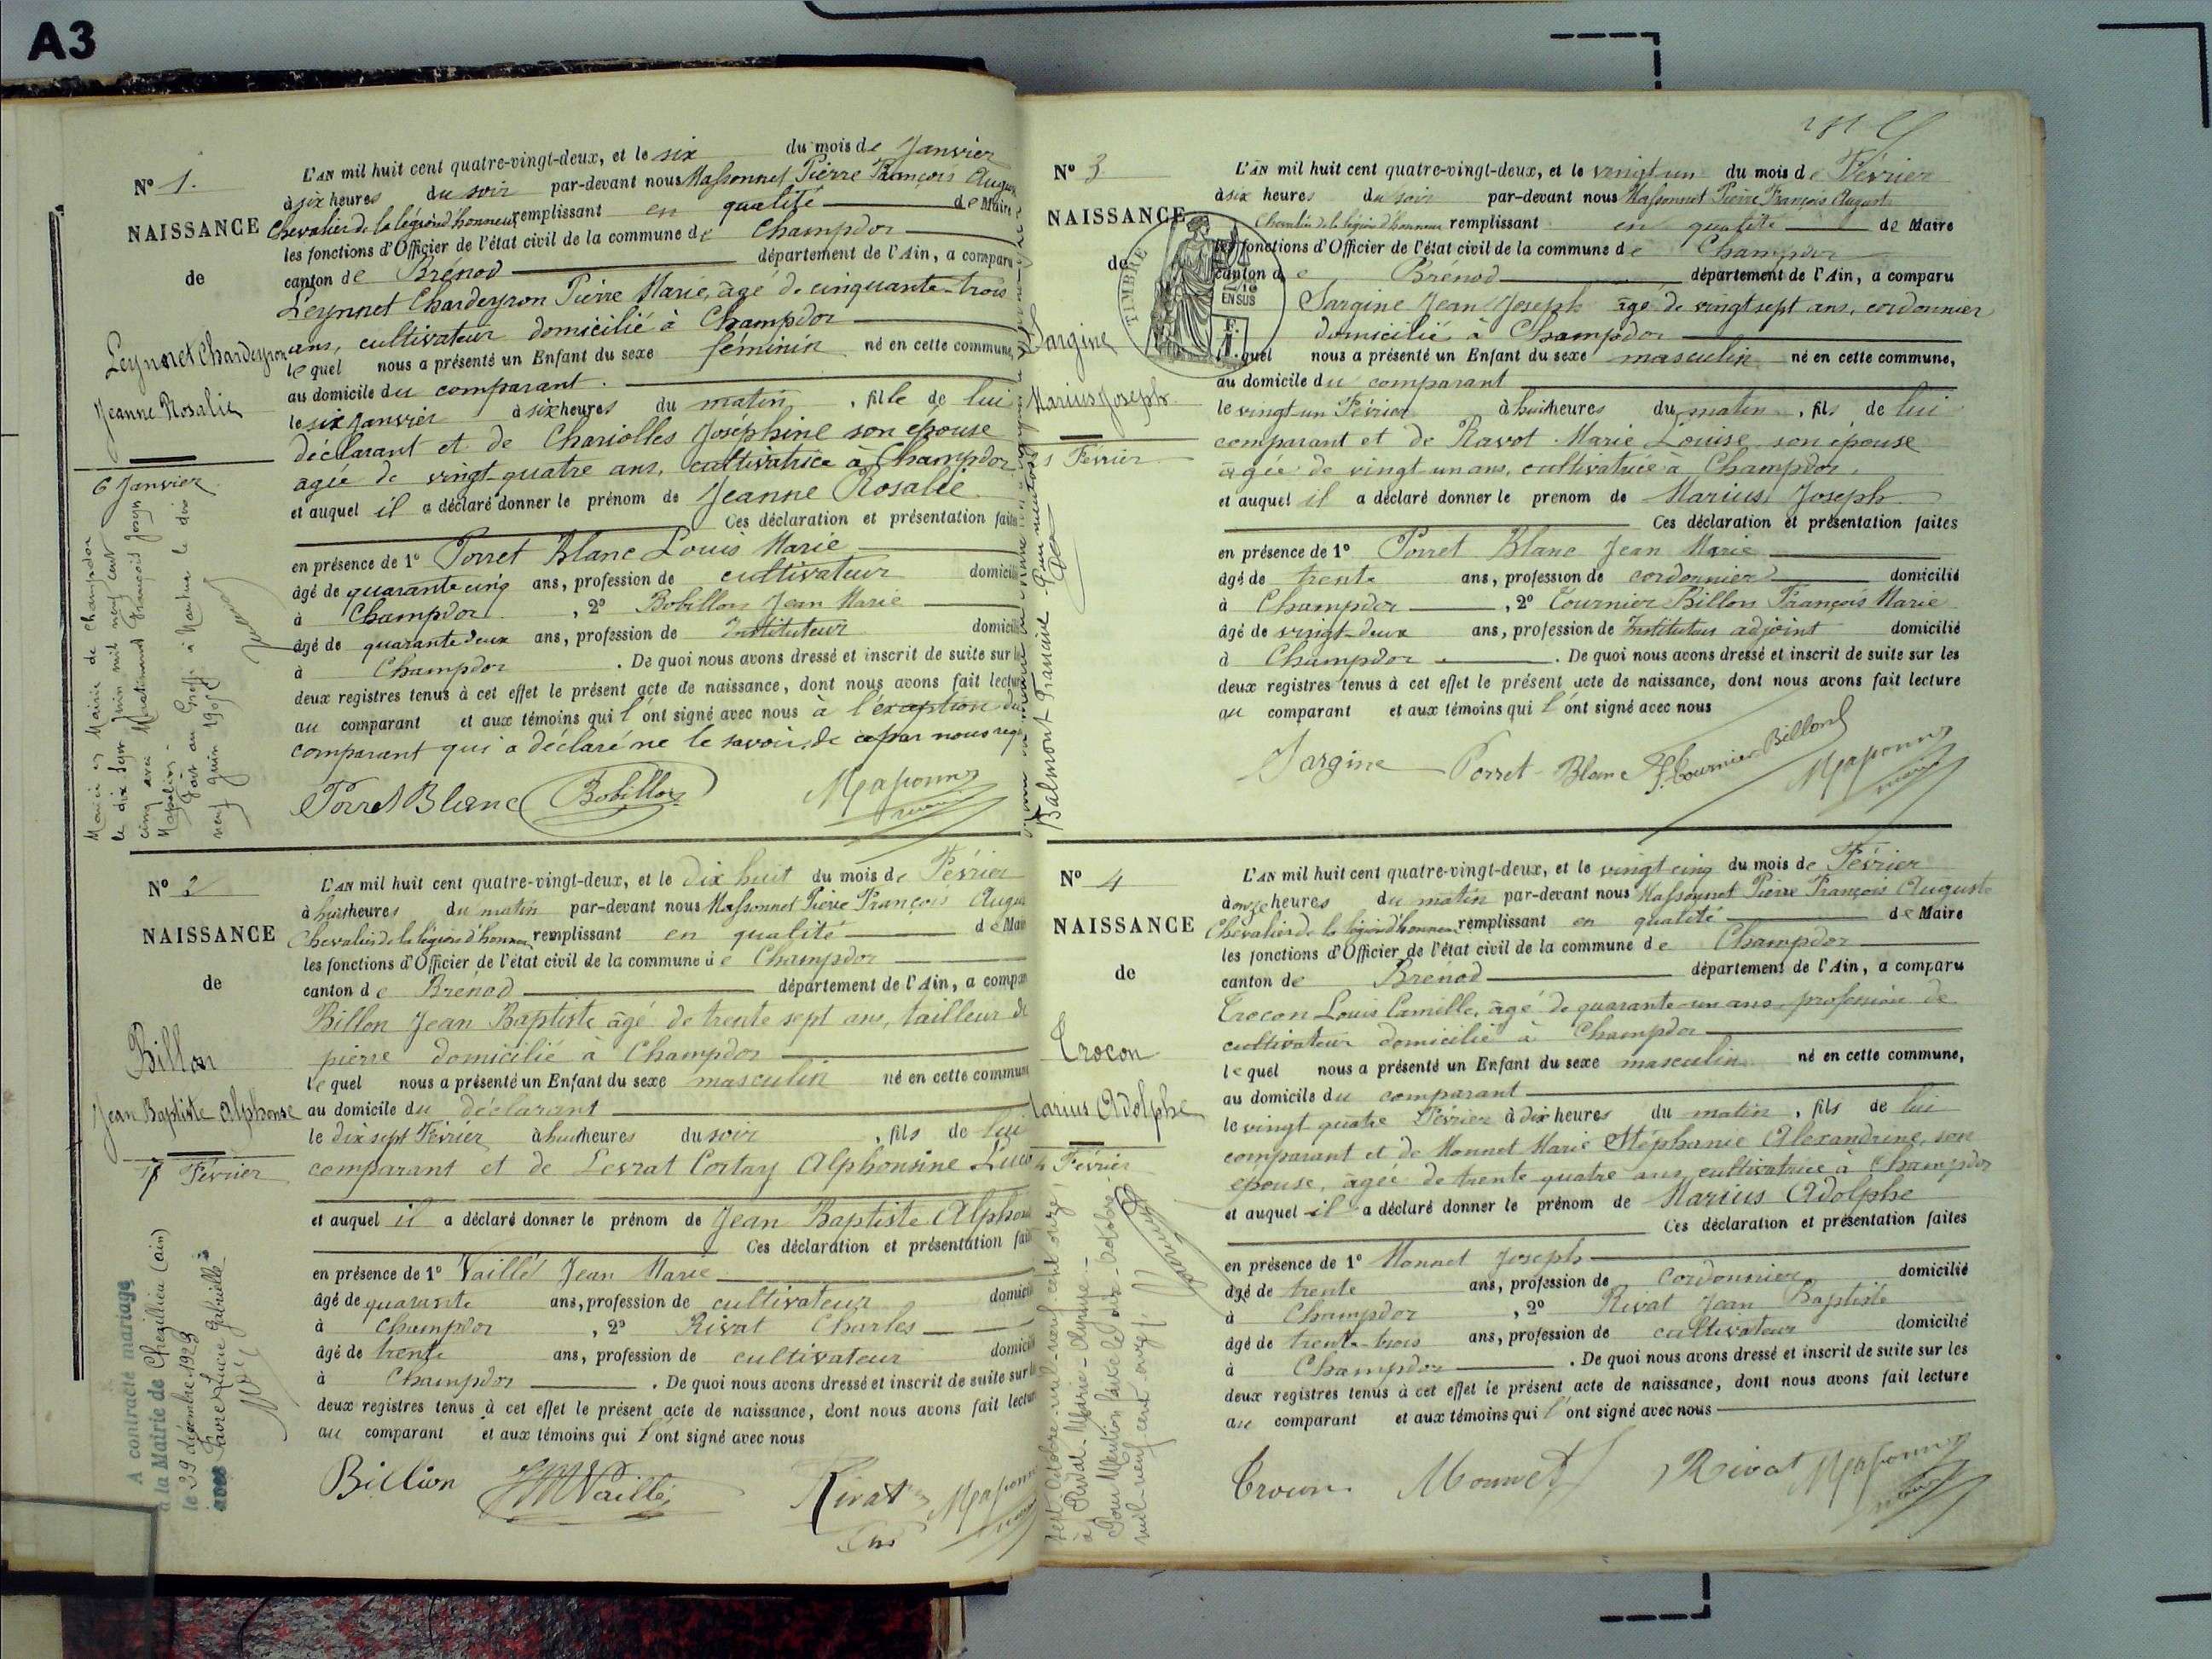 A3
N° 1.
NAISSANCE
de
Leynnet Chardeyron
Jeanne Rosalie
6 Janvier
Mariée en Mairie de Champdor
le dix sept juin mil neuf cent
cinq avec
neuf juin 1905
L'AN mil huit cent quatre-vingt-deux, et le six du mois de Janvier
à six heures du soir par-devant nous Massonnet Pierre François Augus
Chevalier de la légion d'honneur remplissant en qualité de Maire
les fonctions d'Officier de l'état civil de la commune de Champdor
canton de Brénod département de l'Ain, a comparu
Leynnet Chardeyron Pierre Marie, âgé de cinquante-trois
ans, cultivateur domicilié à Champdor
lequel nous a présenté un Enfant du sexe féminin né en cette commune,
au domicile du comparant.
le six Janvier à six heures du matin, fille de lui
déclarant et de Chariolles Joséphine son épouse
agée de vingt-quatre ans, cultivatrice à Champdor
et auquel il a déclaré donner le prénom de Jeanne Rosalie
Ces déclaration et présentation faites
en présence de 1° Porret Blanc Louis Marie
âgé de quarante cinq ans, profession de cultivateur domicilié
à Champdor, 2° Bobillon Jean Marie
âgé de quarante deux ans, profession de Instituteur domicilié
à Champdor. De quoi nous avons dressé et inscrit de suite sur les
deux registres tenus à cet effet le présent acte de naissance, dont nous avons fait lecture
au comparant et aux témoins qui l'ont signé avec nous à l'exception du
comparant qui a déclaré ne le savoir, de ce par nous req
Porret Blanc Bobillon Massonnet
maire
N° 2
NAISSANCE
de
Billon
Jean Baptiste Alphonse
17 Février
A contracté mariage
à la Mairie de Chezillieu (Ain)
le 29 décembre 1923
avec Favre Lucie Gabrielle
L'AN mil huit cent quatre-vingt-deux, et le dix huit du mois de Février
à huit heures du matin par-devant nous Massonnet Pierre François Augus
Chevalier de la légion d'honneur remplissant en qualité de Maire
les fonctions d'Officier de l'état civil de la commune de Champdor
canton de Brénod département de l'Ain, a comparu
Billon Jean Baptiste âgé de trente sept ans, tailleur de
pierre domicilié à Champdor
lequel nous a présenté un Enfant du sexe masculin né en cette commune
au domicile du déclarant
le dix sept Février à huit heures du soir, fils de lui
comparant et de Levrat Cortay Alphonsine Luce
et auquel il a déclaré donner le prénom de Jean Baptiste Alphon
Ces déclaration et présentation faites
en présence de 1° Vaillé Jean Marie
âgé de quarante ans, profession de cultivateur domicilié
à Champdor, 2° Rivat Charles
âgé de trente ans, profession de cultivateur domicilié
à Champdor. De quoi nous avons dressé et inscrit de suite sur les
deux registres tenus à cet effet le présent acte de naissance, dont nous avons fait lecture
au comparant et aux témoins qui l'ont signé avec nous
Billion JM Vaillé Rivat Massonnet
maire
N° 3
NAISSANCE
de
TIMBRE
2/10
EN SUS
Sargine
Marius Joseph
21 Février
Balmont Francine
L'AN mil huit cent quatre-vingt-deux, et le vingt un du mois de Février
à six heures du soir par-devant nous Massonnet Pierre François Auguste
Chevalier de la légion d'honneur remplissant en qualité de Maire
les fonctions d'Officier de l'état civil de la commune de Champdor
canton de Brenod département de l'Ain, a comparu
Sargine Jean Joseph âgé de vingt sept ans, cordonnier
domicilié à Champdor
lequel nous a présenté un Enfant du sexe masculin né en cette commune,
au domicile du comparant
le vingt un Février à huit heures du matin, fils de lui
comparant et de Ravot Marie Louise son épouse
agée de vingt un ans, cultivatrice à Champdor,
et auquel il a déclaré donner le prenom de Marius Joseph
Ces déclaration et présentation faites
en présence de 1° Porret Blanc Jean Marie
âgé de trente ans, profession de cordonnier domicilié
à Champdor, 2° Tournier Billon François Marie
âgé de vingt-deux ans, profession de Instituteur adjoint domicilié
à Champdor. De quoi nous avons dressé et inscrit de suite sur les
deux registres tenus à cet effet le présent acte de naissance, dont nous avons fait lecture
au comparant et aux témoins qui l'ont signé avec nous
Sargine Porret-Blanc F. Tournier Billon Massonnet
maire
N° 4
NAISSANCE
de
Crocon
Marius Adolphe
24 Février
sept octobre mil neuf cent onze,
à Pudal Marie Olympe.
Pour Mention faite le dix octobre
mil neuf cent onze.
L'AN mil huit cent quatre-vingt-deux, et le vingt cinq du mois de Février
à onze heures du matin par-devant nous Massonnet Pierre François Auguste
Chevalier de la légion d'honneur remplissant en qualité de Maire
les fonctions d'Officier de l'état civil de la commune de Champdor
canton de Brénod département de l'Ain, a comparu
Crocon Louis Camille, âgé de quarante-un ans profession de
cultivateur domicilié à Champdor
lequel nous a présenté un Enfant du sexe masculin né en cette commune,
au domicile du comparant
le vingt quatre Février à dix heures du matin, fils de lui
comparant et de Monnet Marie Stéphanie Alexandrine, son
épouse, âgée de trente quatre ans, cultivatrice à Champdor
et auquel il a déclaré donner le prénom de Marius Adolphe
Ces déclaration et présentation faites
en présence de 1° Monnet Joseph
âgé de trente ans, profession de cordonnier domicilié
à Champdor, 2° Rivat Jean Baptiste
âgé de trente-trois ans, profession de cultivateur domicilié
à Champdor. De quoi nous avons dressé et inscrit de suite sur les
deux registres tenus à cet effet le présent acte de naissance, dont nous avons fait lecture
au comparant et aux témoins qui l'ont signé avec nous
Crocon Monnet Rivat Massonnet
maire